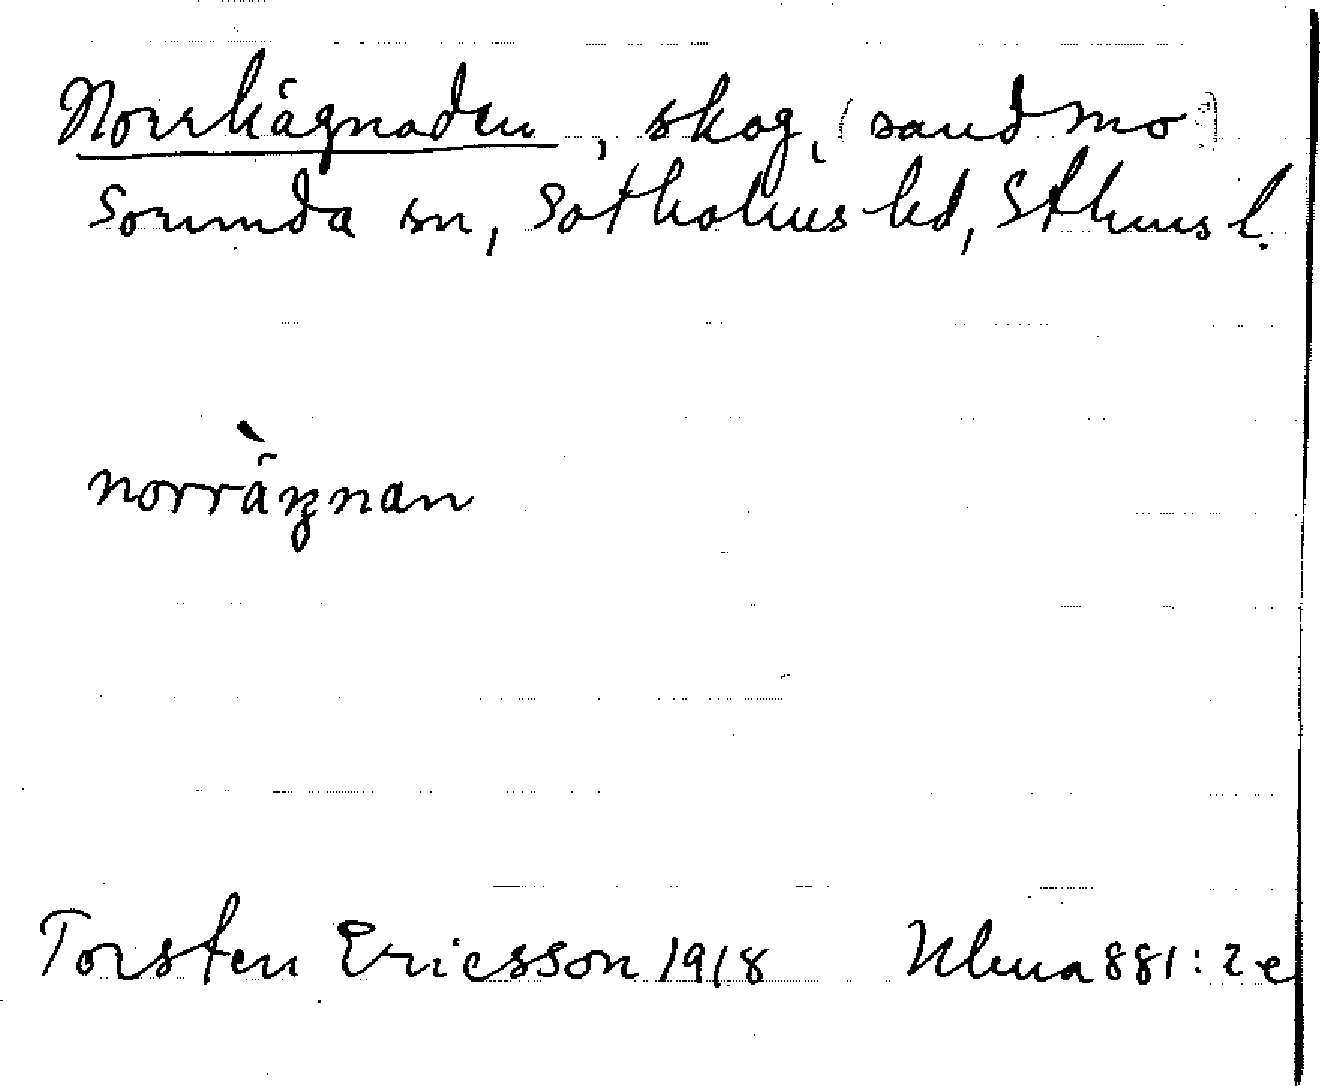 Norrhägnaden, skog, (sandmo)
Sorunda sn, Sotholms hd, Sthms l.
norrä̀ŋnan
Torsten Ericsson 1918 Ulma 881:2e